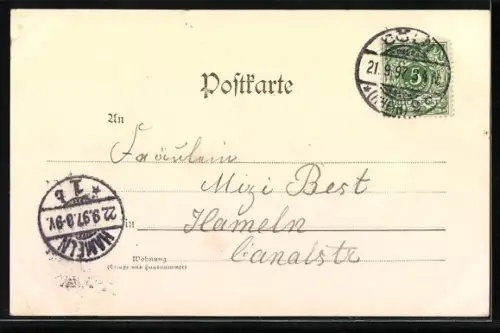 Postkarte
CÖLN
21.9.97
5
(RHEIN)
An
Fräulein
Mizi Best
in Hameln
Canalstr
Wohnung
(Straße und Hausnummer)
1 b
22.9.97.8-9V.
HAMELN